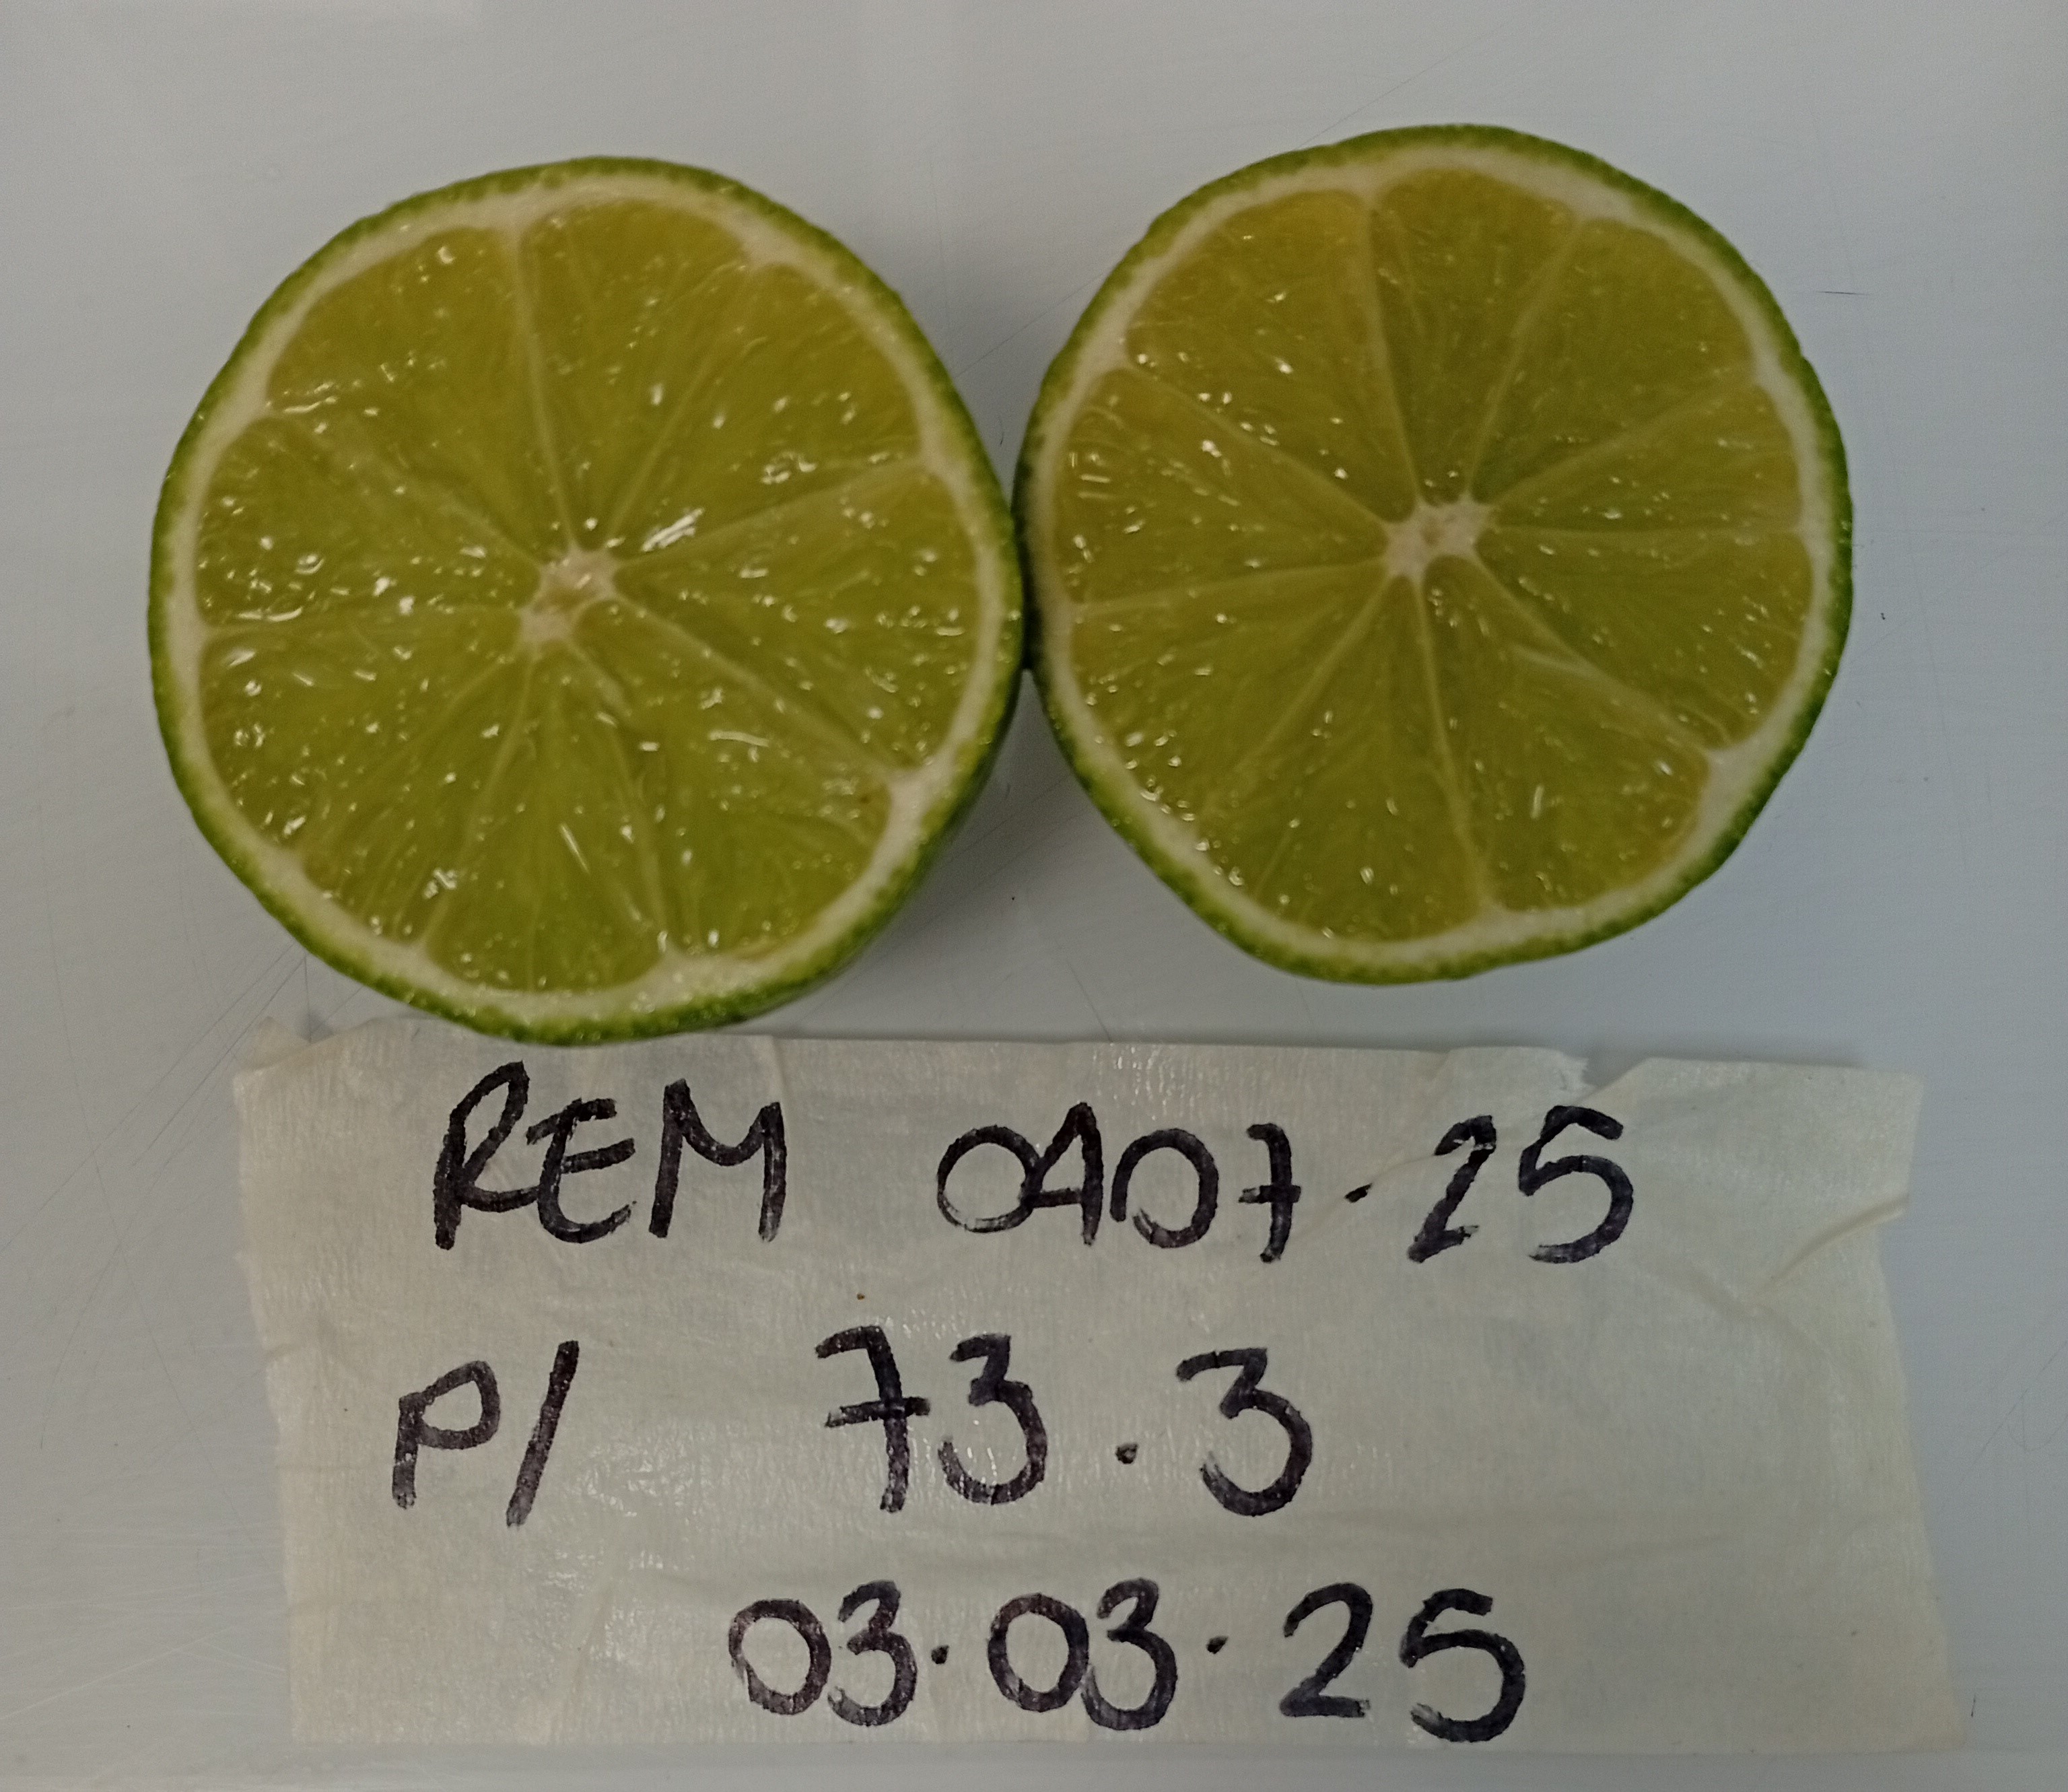 REM 0107.25
P/ 73.3
03.03.25